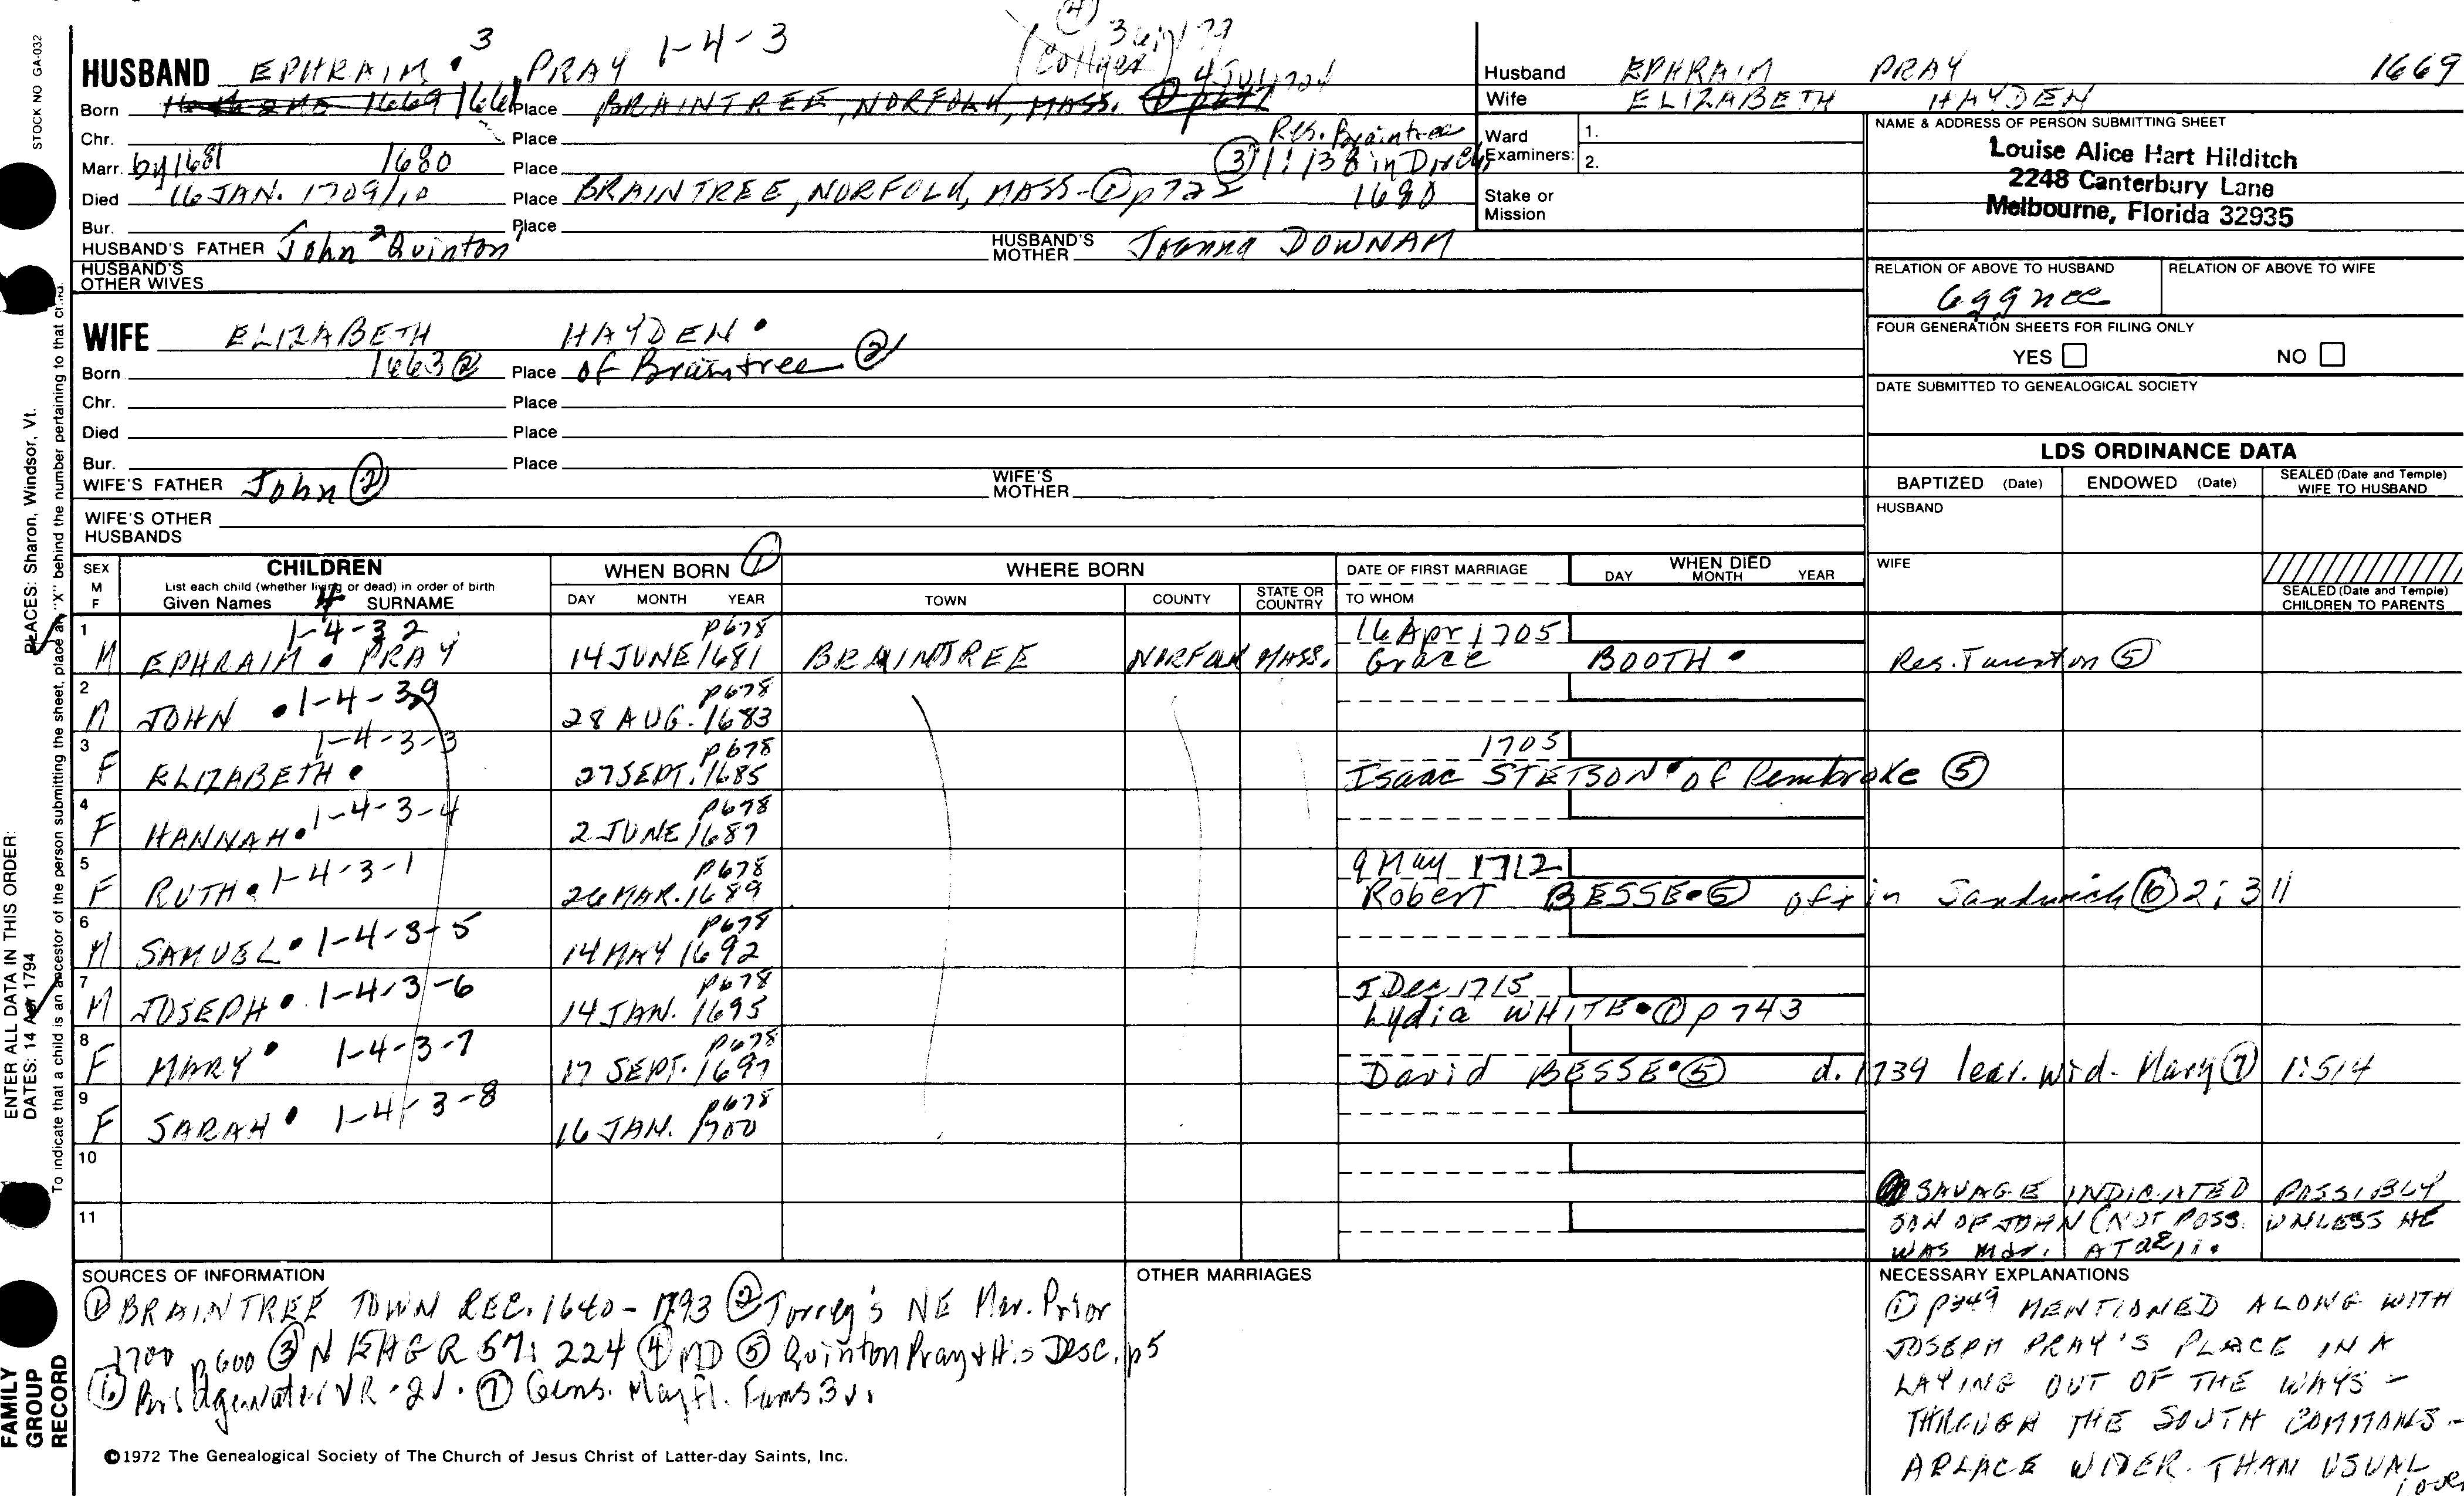 STOCK NO GA-032
HUSBAND EPHRAIM 3 PRAY 1-4-3
Born 1669 1661 Place BRAINTREE, NORFOLK, MASS. ① p671
Chr. Place
Res. Braintree
Marr. by 1681 1680 Place ③ 11138 in Direly
Died 16 JAN. 1709/10 Place BRAINTREE, NORFOLK, MASS-① p722 1690
Bur. Place
HUSBAND'S FATHER John 2 Quinton 1 HUSBAND'S MOTHER Joanna DOWNAM
HUSBAND'S OTHER WIVES
WIFE ELIZABETH HAYDEN
Born 1663 ② Place of Braintree ②
Chr. Place
Died Place
Bur. Place
WIFE'S FATHER John ② WIFE'S MOTHER
WIFE'S OTHER HUSBANDS
Husband EPHRAIM PRAY 1669
Wife ELIZABETH HAYDEN
Ward Examiners: 1.
2.
Stake or Mission
NAME & ADDRESS OF PERSON SUBMITTING SHEET
Louise Alice Hart Hilditch
2248 Canterbury Lane
Melbourne, Florida 32935
RELATION OF ABOVE TO HUSBAND RELATION OF ABOVE TO WIFE
6 gg nee
FOUR GENERATION SHEETS FOR FILING ONLY
YES NO
DATE SUBMITTED TO GENEALOGICAL SOCIETY
LDS ORDINANCE DATA
BAPTIZED (Date) ENDOWED (Date) SEALED (Date and Temple) WIFE TO HUSBAND
HUSBAND
WIFE
SEALED (Date and Temple) CHILDREN TO PARENTS
SEX M F CHILDREN WHEN BORN ① WHERE BORN DATE OF FIRST MARRIAGE WHEN DIED
List each child (whether living or dead) in order of birth
Given Names 4 SURNAME DAY MONTH YEAR TOWN COUNTY STATE OR COUNTRY TO WHOM DAY MONTH YEAR
1 1-4-3 2 p678 16 Apr 1705
M EPHRAIM PRAY 14 JUNE 1681 BRAINTREE NORFOLK MASS. Grace BOOTH Res. Taunton ⑤
2 p678
M JOHN 1-4-39 28 AUG. 1683
3 1-4-3-3 p678 1705
F ELIZABETH 27 SEPT. 1685 Isaac STETSON of Pembroke ⑤
4 p678
F HANNAH 1-4-3-4 2 JUNE 1687
5 p678 9 May 1712
F RUTH 1-4-3-1 26 MAR. 1689 Robert BESSE ⑤ of + in Sandwich ⑥ 2; 311
6 p678
M SAMUEL 1-4-3-5 14 MAY 1692
7 p678 5 Dec 1715
M JOSEPH 1-4-3-6 14 JAN. 1695 Lydia WHITE ① p 743
8 p678
F MARY 1-4-3-7 17 SEPT. 1697 David BESSE ⑤ d. 1739 leav. wid. Mary ⑦ 1:514
9 p678
F SARAH 1-4-3-8 16 JAN. 1700
10
11
SAVAGE INDICATED POSSIBLY
SON OF JOHN (NOT POSS. UNLESS HE
WAS Mar. AT ae 11.
SOURCES OF INFORMATION
① BRAINTREE TOWN REC. 1640-1793 ② Torrey's NE Mar. Prior
1700 p600 ③ NEHGR 57: 224 ④ MD ⑤ Quinton Pray & His Desc. p5
⑥ Bridgewater VR-2v. ⑦ Gens. Mayfl. Fams 3v.
OTHER MARRIAGES
NECESSARY EXPLANATIONS
① p349 MENTIONED ALONG WITH
JOSEPH PRAY'S PLACE IN A
LAYING OUT OF THE WAYS -
THROUGH THE SOUTH COMMONS -
A PLACE WIDER THAN USUAL
over
©1972 The Genealogical Society of The Church of Jesus Christ of Latter-day Saints, Inc.
FAMILY GROUP RECORD
ENTER ALL DATA IN THIS ORDER:
DATES: 14 Apr 1794 PLACES: Sharon, Windsor, Vt.
To indicate that a child is an ancestor of the person submitting the sheet, place an "X" behind the number pertaining to that child.